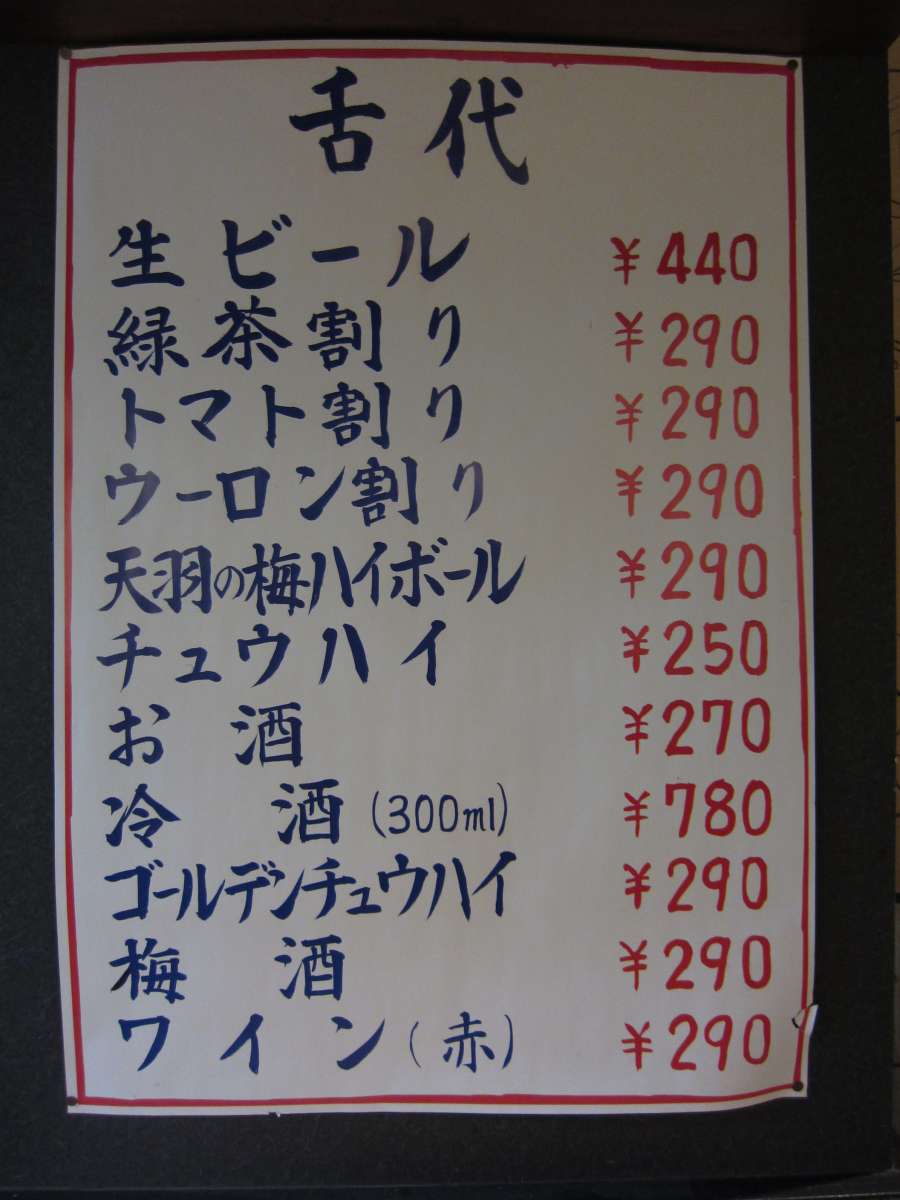 舌代
生ビール ¥440
緑茶割り ¥290
トマト割り ¥290
ウーロン割り ¥290
天羽の梅ハイボール ¥290
チュウハイ ¥250
お酒 ¥270
冷酒(300ml) ¥780
ゴールデンチュウハイ ¥290
梅酒 ¥290
ワイン(赤) ¥290